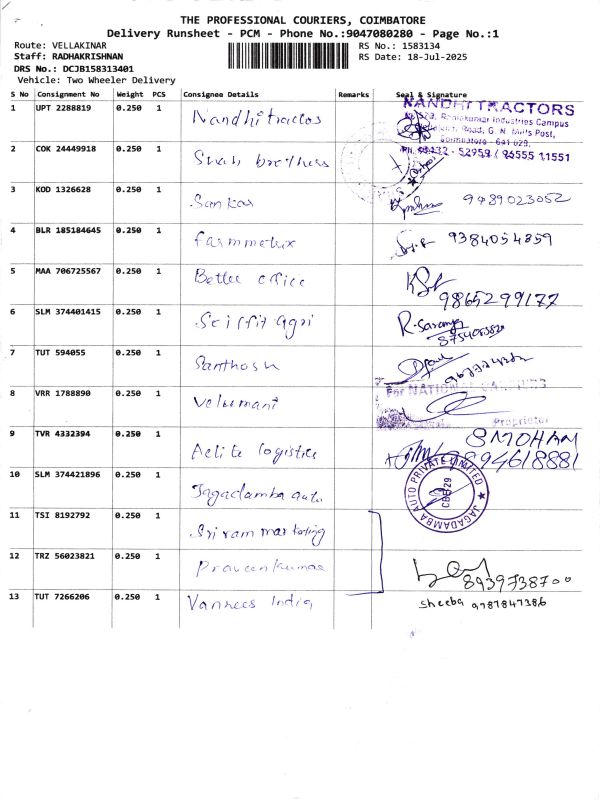 THE PROFESSIONAL COURIERS, COIMBATORE
Delivery Runsheet - PCM - Phone No.:9047080280 - Page No.:1
Route: VELLAKINAR
RS No.: 1583134
Staff: RADHAKRISHNAN
RS Date: 18-Jul-2025
DRS No.: DCJB158313401
Vehicle: Two Wheeler Delivery
S No Consignment No Weight PCS Consignee Details Remarks Seal & Signature
1 UPT 2288819 0.250 1 Nandhi tractos
NANDHI TRACTORS
Industries Campus
Road, G. N. Mills Post,
Coimbatore - 641 029.
2 COK 24449918 0.250 1 Shah brothers
3 KOD 1326628 0.250 1 Sankar 9489023052
4 BLR 185184645 0.250 1 farmmetrix 9384054359
5 MAA 706725567 0.250 1 Betlee office
9865299177
6 SLM 374401415 0.250 1 Agri R. Saranya
7 TUT 594055 0.250 1 Santhosh
8 VRR 1788890 0.250 1 Velumani
For NATIONAL
Proprietor
9 TVR 4332394 0.250 1 Aelite logistics
S MOHAN
9894618881
10 SLM 374421896 0.250 1 Jagadamba auto
JAGADAMBA AUTO PRIVATE LIMITED
CBE-29
11 TSI 8192792 0.250 1 Sriram marketing
12 TRZ 56023821 0.250 1 Praveenkumar
8939738700
13 TUT 7266206 0.250 1 Vanhees India Sheeba 9787847386